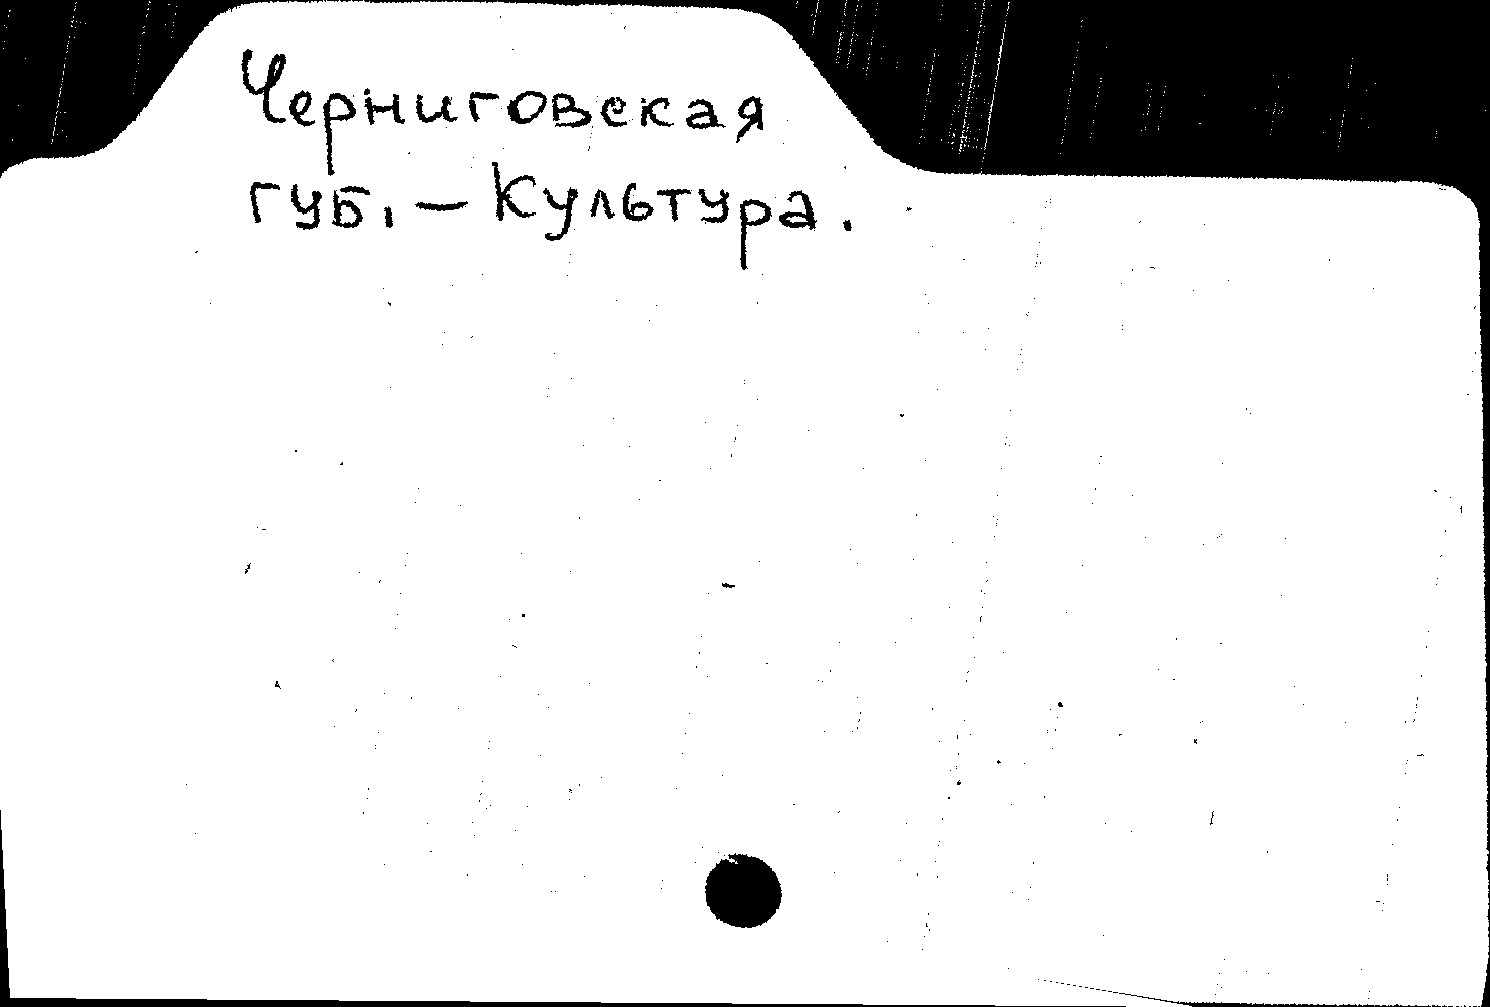 Черниговская
губ. – Культура.